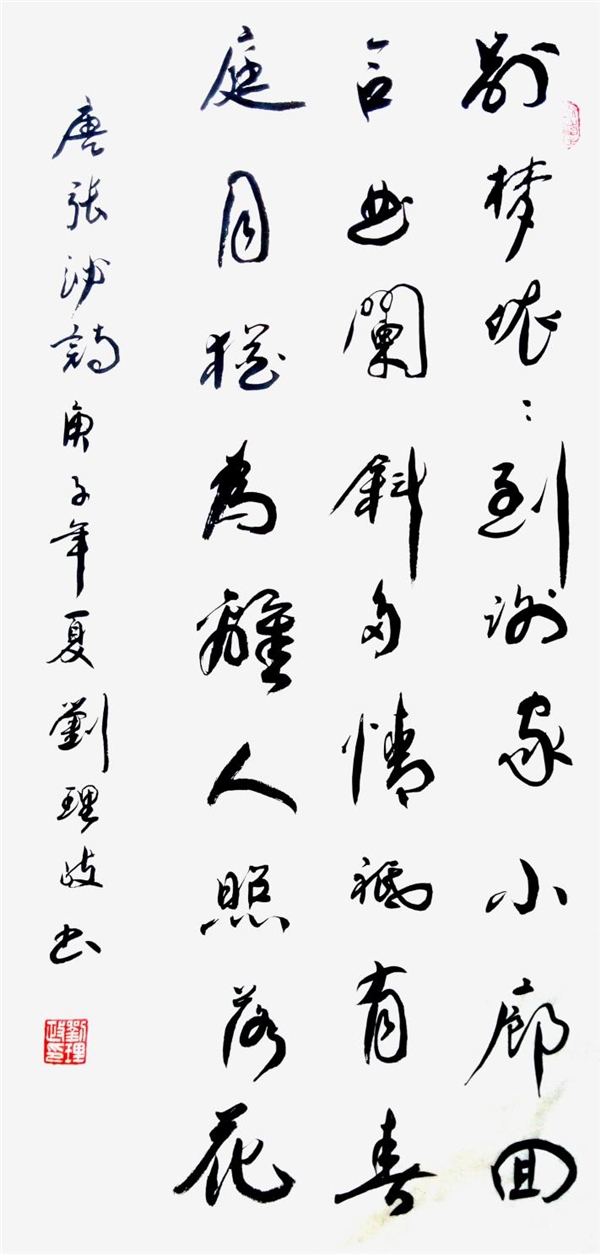 别梦依依到谢家小廊回
合曲闌斜多情祗有春
庭月猶為離人照落花
唐張泌詩庚子年夏劉理政书
劉理政印